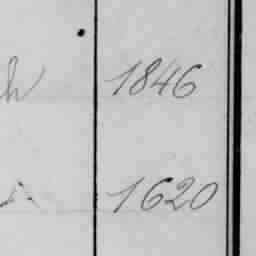 h 1846
1620